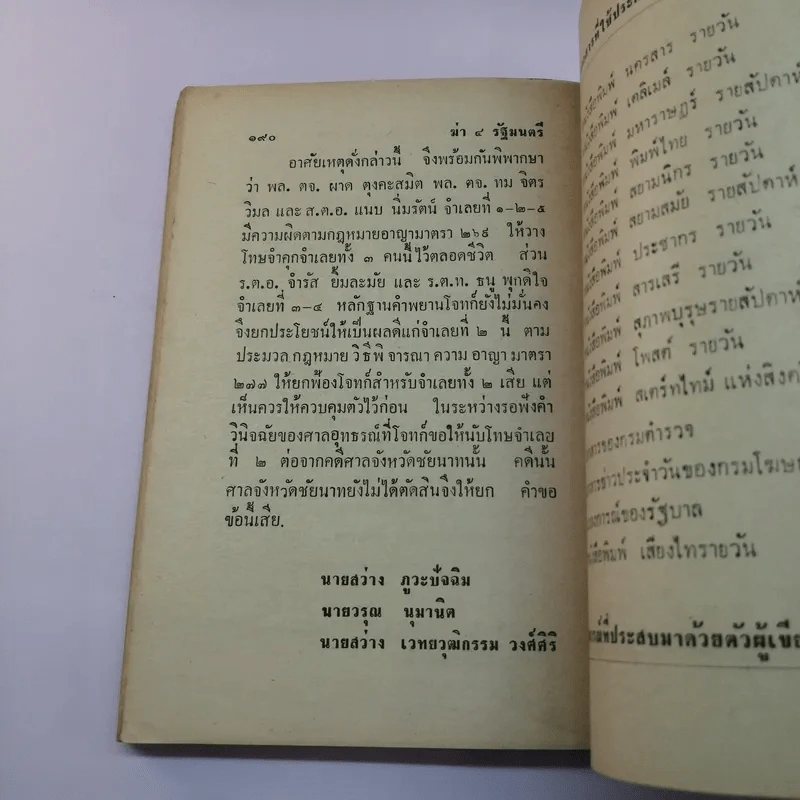 ๑๙๐ ฆ่า ๔ รัฐมนตรี
อาศัยเหตุดั่งกล่าวนี้ จึงพร้อมกันพิพากษา
ว่า พล. ตจ. ผาด ตุงคะสมิต พล. ตจ. ทม จิตร
วิมล และ ส.ต.อ. แนบ นิ่มรัตน์ จำเลยที่ ๑-๒-๕
มีความผิดตามกฎหมายอาญามาตรา ๒๖๙ ให้วาง
โทษจำคุกจำเลยทั้ง ๓ คนนี้ไว้ตลอดชีวิต ส่วน
ร.ต.อ. จำรัส ยิ้มละมัย และ ร.ต.ท. ธนู พุกดีใจ
จำเลยที่ ๓-๔ หลักฐานคำพยานโจทก์ยังไม่มั่นคง
จึงยกประโยชน์ให้เป็นผลดีแก่จำเลยที่ ๒ นี้ ตาม
ประมวล กฎหมาย วิธีพิ จารณา ความ อาญา มาตรา
๒๗๗ ให้ยกฟ้องโจทก์สำหรับจำเลยทั้ง ๒ เสีย แต่
เห็นควรให้ควบคุมตัวไว้ก่อน ในระหว่างรอฟังคำ
วินิจฉัยของศาลอุทธรณ์ที่โจทก์ขอให้นับโทษจำเลย
ที่ ๒ ต่อจากคดีศาลจังหวัดชัยนาทนั้น คดีนั้น
ศาลจังหวัดชัยนาทยังไม่ได้ตัดสินจึงให้ยก คำขอ
ข้อนี้เสีย.
นายสว่าง ภูวะปัจฉิม
นายวรุณ นุมานิต
นายสว่าง เวทยวุฒิกรรม วงศ์ศิริ
นครสาร รายวัน
เดลิเมล์ รายวัน
มหาราษฎร์ รายสัปดาห์
พิมพ์ไทย รายวัน
สยามนิกร รายวัน
สยามสมัย รายสัปดาห์
ประชากร รายวัน
สารเสรี รายวัน
สุภาพบุรุษรายสัปดาห์
โพสต์ รายวัน
สเตร็ทไทม์ แห่งสิงค
ของกรมตำรวจ
ข่าวประจำวันของกรมโฆษ
ของรัฐบาล
เสียงไทรายวัน
ที่ประสบมาด้วยตัวผู้เขีย